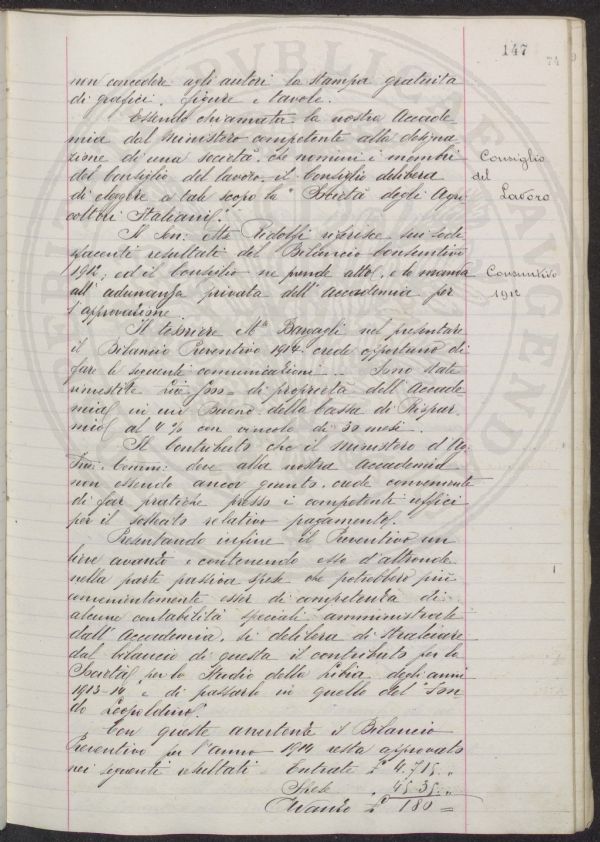 147
74
non concedere agli autori la stampa gratuita
di grafici, figure e tavole.
Essendo chiamata la nostra Accade-
mia dal Ministero competente alla designa
zione di una società, che nomini i membri
del Consiglio del lavoro, il Consiglio delibera
di eleggere a tale scopo la "Società degli Agri
coltori Italiani".
Consiglio
del
Lavoro
Il Sen: Ridolfi riferisce sui sode
sfacenti resultati del Bilancio Consuntivo
1912; ed il Consiglio ne prende atto, e lo manda
all'adunanza privata dell'Accademia per
l'approvazione.
Consuntivo
1912
Il tesoriere Mse Bargagli nel presentare
il Bilancio Preventivo 1914 crede opportuno di
fare le seguenti comunicazioni... Sono state
rinvestite di proprietà dell'Accade-
mia in un Buono della Cassa di Rispar
mio al 4% con vincolo di 30 mesi.
Il Contributo che il Ministero d'Ag.
Comm: deve alla nostra Accademia
non essendo ancor giunto, crede conveniente
di far pratiche presso i competenti uffici
per il sollecito relativo pagamento.
Presentando infine il Preventivo un
lieve avanzo e contenendo esso d'altronde
nella parte passiva spese che potrebbero più
convenientemente esser di competenza di
alcune contabilità speciali amministrate
dall'Accademia, si delibera di stralciare
dal bilancio di questa il contributo per la
Società per lo Studio della Libia degli anni
1913-14 e di passarlo in quello del "Fon-
do Leopoldino".
Con queste avvertenze il Bilancio
Preventivo per l'anno 1914 resta approvato
nei seguenti resultati Entrate £ 4.715 "
Spese " 4535 "
Avanzo £ 180 =